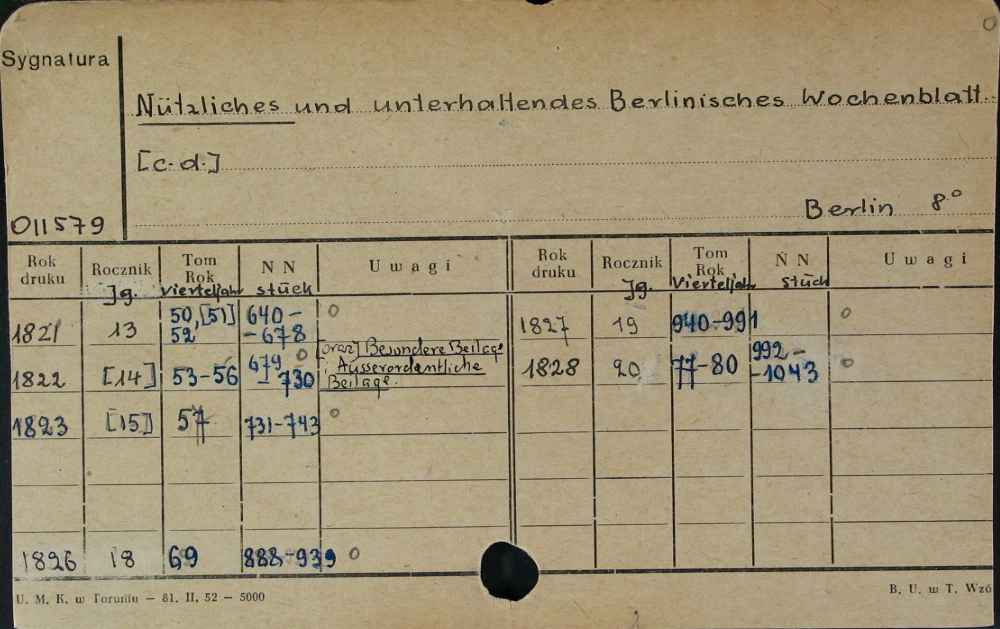 Sygnatura
Nützliches und unterhaltendes Berlinisches Wochenblatt
[c.d.]
Berlin 8°
011579
Rok druku Rocznik Tom Rok N N Uwagi Rok druku Rocznik Tom Rok N N Uwagi
Jg. Vierteljahr stück Jg. Vierteljahr stück
1821 13 50,[51] 52 640- -678 o
1822 [14] 53-56 679 - 730 o [oraz] Besondere Beilage
Ausserordentliche
Beilage.
1823 [15] 57 731-743 o
1826 18 69 888-939 o
1827 19 940-991 o
1828 20 77-80 992- -1043 o
U. M. K. w Toruniu — 81. II, 52 — 5000
B. U. w T. Wzó